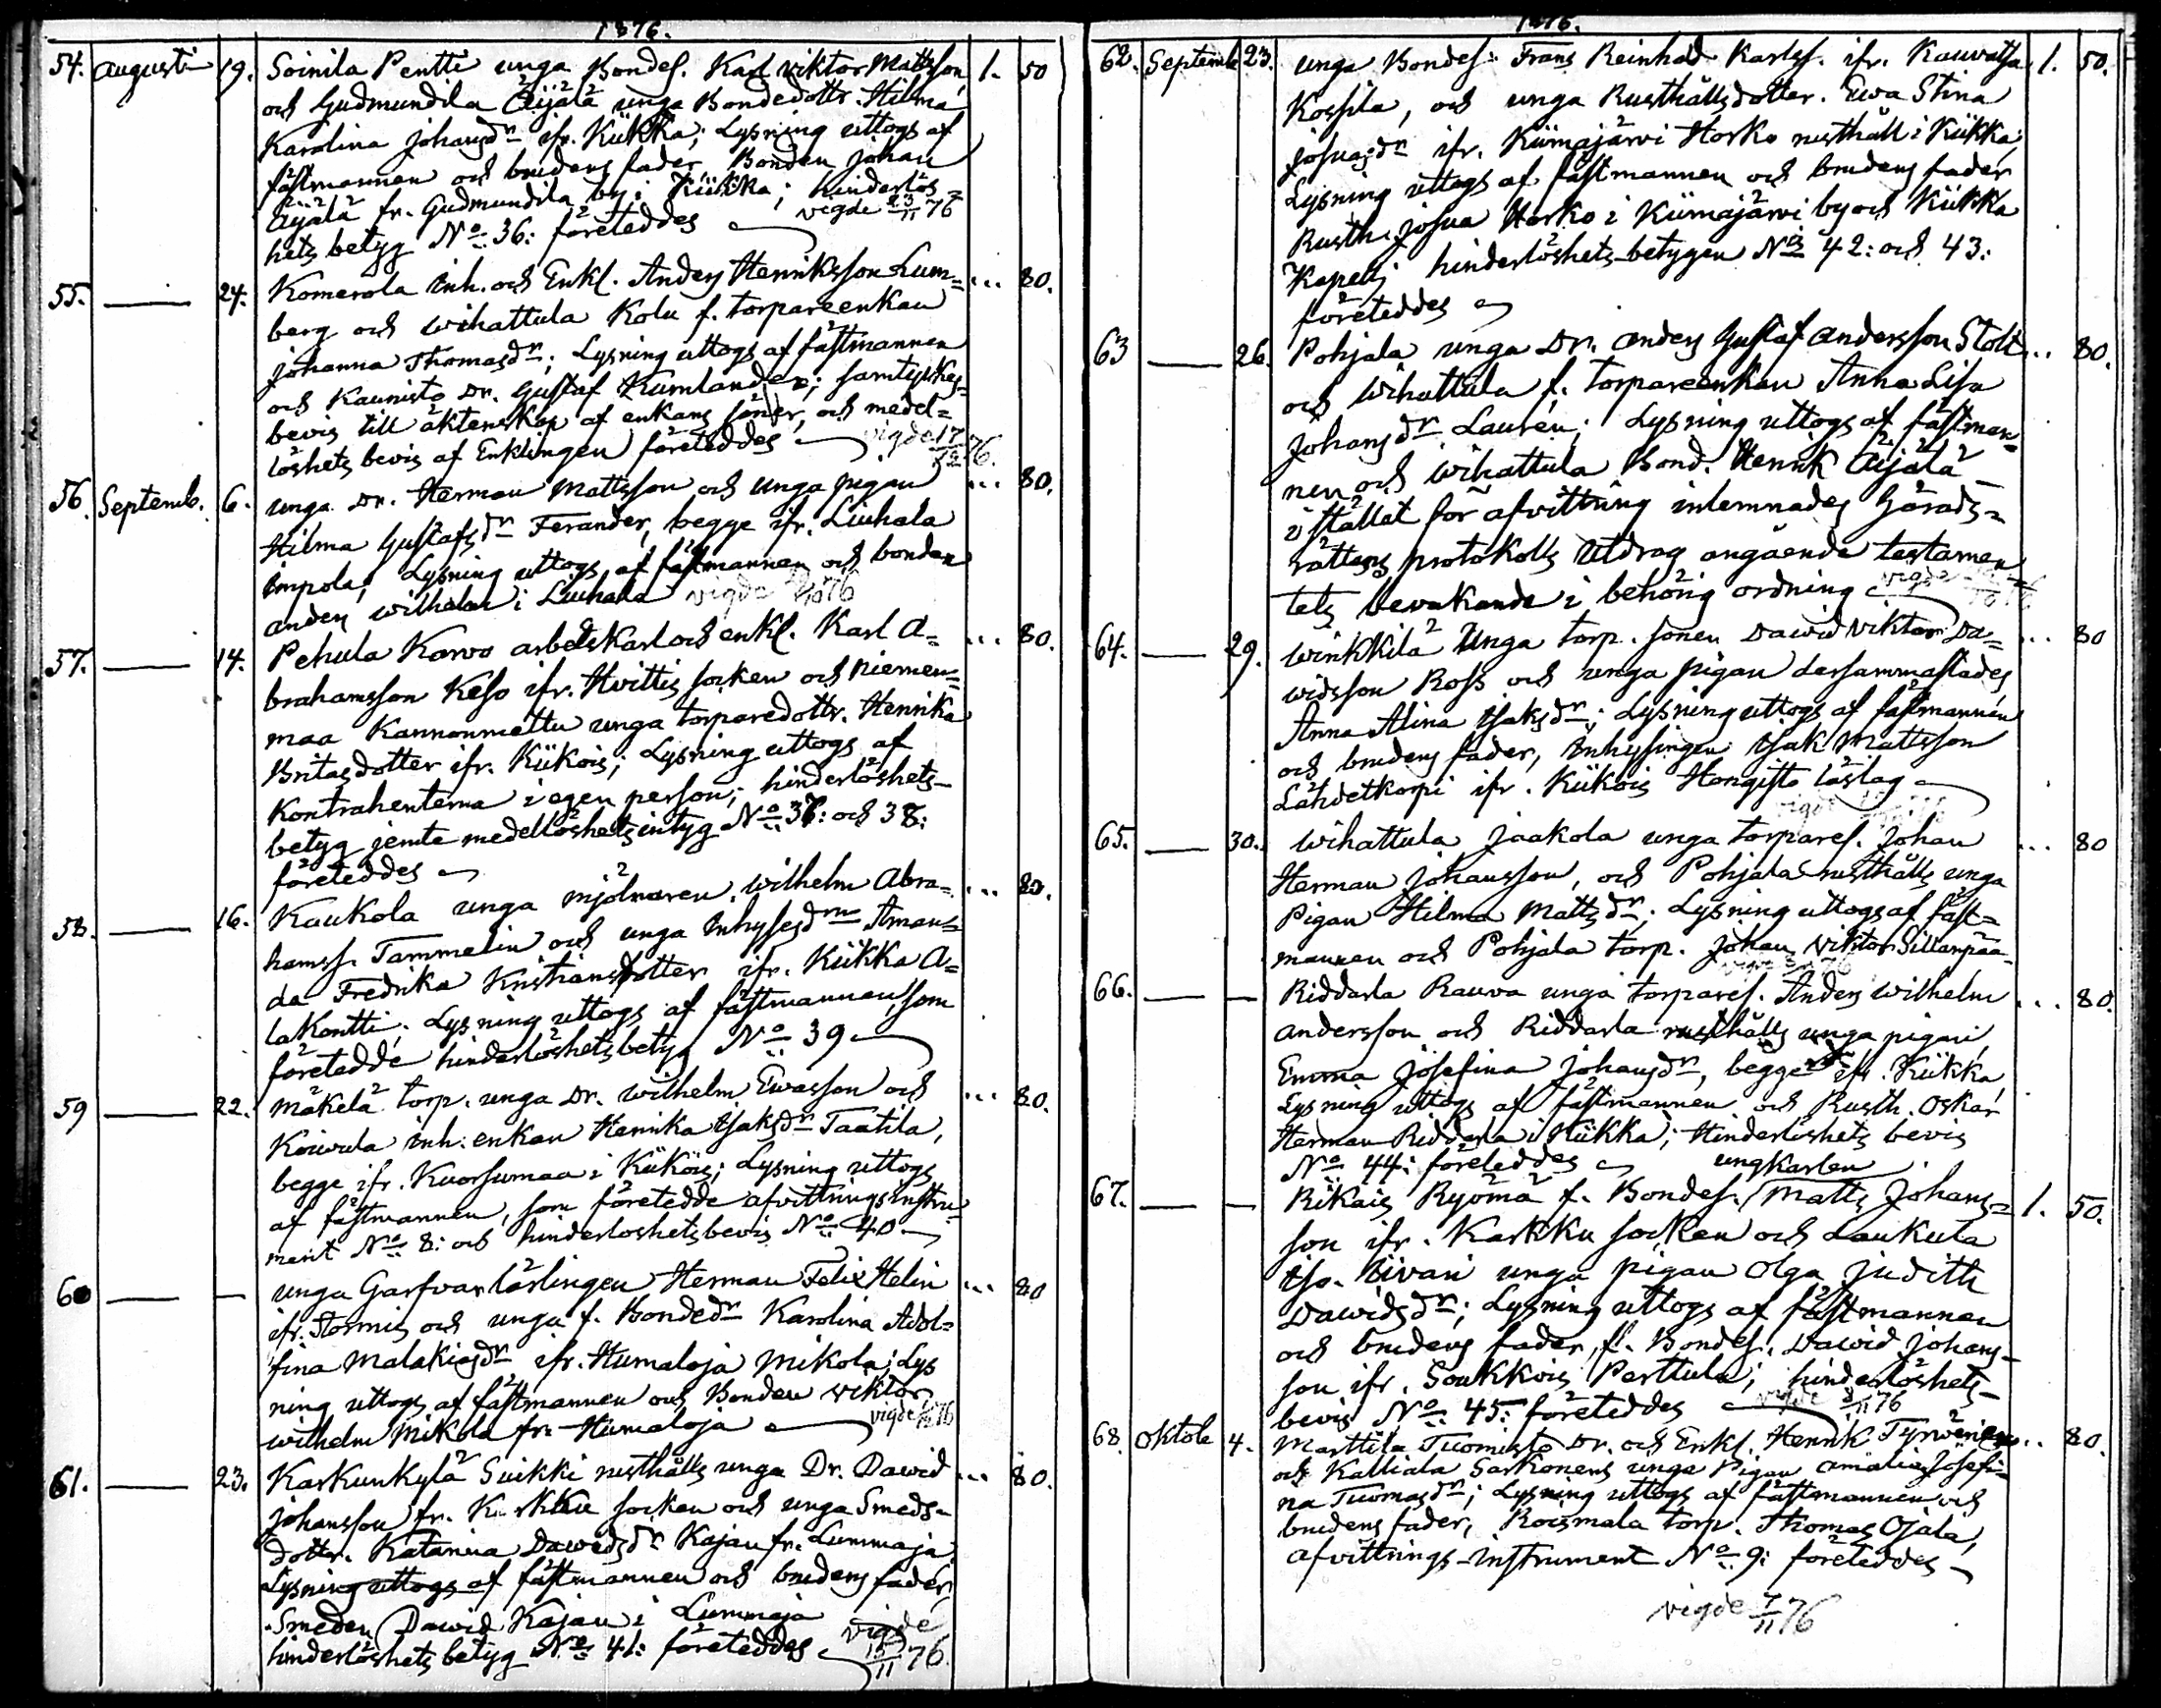 1876.
54. Augusti 19. Soinila Pentti unga Bondes. Karl Viktor Mattsson, 1. 50
och Gudmundila Äijälä unga Bondedottr. Hilma
Karolina Johansdr ifr. Kiikka; Lysning uttogs af
fästmannen och brudens fader, Bonden Johan
Äijälä fr. Gudmundila by i Kiikka; hinderlös=
hets betyg No 36: företeddes vigde 23/11 76
55. — 24. Komerola Inh. och Enkl. Anders Henriksson Lum= ... 80.
berg och Wihattula Kolu f. torpareenkan
Johanna Thomasdr; Lysning uttogs af fästmannen
och Kaunisto Dr. Gustaf Kumlander; samtyckes=
bevis till äktenskap af enkans söner, och medel=
löshets bevis af Enklingen företeddes vigde 17/12 76.
56. Septemb. 6. unga Dr. Herman Mattsson och unga pigan ... 80.
Hilma Gustafsdr Ferander, begge ifr. Liuhala
Impola; Lysning uttogs af fästmannen och bonden
Anders Wilhelm i Liuhala vigde 76
57. — 14. Pehula Karvo arbetskarl och enkl. Karl A= ... 80.
brahamsson Keso ifr. Hvittis socken och Niemen=
maa Kannonmettu unga torparedottr. Henrika
Britasdotter ifr. Kiikois; Lysning uttogs af
Kontrahenterna i egen person; hinderlöshets=
betyg jemte medellöshets intyg No 37: och 38:
företeddes
58. — 16. Kaukola unga mjölnaren Wilhelm Abra= ... 80.
hamss. Tammelin och unga Inhysesdrn Aman=
da Fredrika Kristiansdotter ifr. Kiikka A=
lakontti; Lysning uttogs af fästmannen, som
företedde hinderlöshets betyg No 39
59 — 22. Mäkelä torp. unga Dr. Wilhelm Ewasson och ... 80.
Koivula inh: enkan Henrika Isaksdr Taatila,
begge ifr. Kuorsumaa i Kiikois; Lysning uttogs
af fästmannen, som företedde afvittringsinstru=
ment No 8: och hinderloshets bevis No 40
60 — — unga Garfvarlärlingen Herman Felix Helin ... 80
ifr. Stormis och unga f. Bondedr Karolina Adol=
fina Malakiasdr ifr. Humaloja Mikola; Lys
ning uttogs af fästmannen och Bonden Viktor
Wilhelm Mikola fr. Humaloja vigde 76
61. — 23. Karkunkylä Suikki rusthålls unga Dr. Dawid ... 80.
Johansson fr. Karkku socken och unga Smeds=
dottr. Katarina Dawidsdr Kajan fr. Lummaja
Lysning uttogs af fästmannen och brudens fader,
Smeden Dawid Kajan i Lummaja vigde
hinderlöshets betyg No 41: företeddes 15/11 76.
1876.
62. Septemb 23. unga Bondes: Frans Reinhad Karlss. ifr. Kauvatsa 1. 50.
Kossila, och unga Rusthållsdotter. Ewa Stina
Josuasdr ifr. Kiimajärvi Horko rusthåll i Kiikka;
Lysning uttogs af fästmannen och brudens fader
Rusth. Josua Horko i Kiimajärvi by och Kiikka
Kapell; hinderlöshets-betygen No 42: och 43:
företeddes
63 — 26. Pohjala unga Dr. Anders Gustaf Andersson Stolt ... 80.
och Wihattula f. torpareenkan Anna Lisa
Johansdr Laurén; Lysning uttogs af fästman=
nen och Wihattula Bond. Henrik Äijälä
i stället för afvittring inlemnades Härads=
rättens protokolls Utdrag angående testamen
tets bevakande i behörig ordning vigde
64. — 29. Winkkilä Unga torp. sonen Dawid Viktor Da= ... 80
widsson Ross och unga pigan dersammastädes
Anna Alina Isaksdr; Lysning uttogs af fästmannen
och brudens fader, Inhysingen Isak Mattsson
Lähdetkorpi ifr. Kiikois Hongisto läslag
65. — 30. Wihattula Jaakola unga torpares. Johan ... 80
Herman Johansson, och Pohjala rusthålls unga
Pigan Hilma Mattsdr; Lysning uttogs af fäst=
mannen och Pohjala torp. Johan Viktor Sillanpää
66. — — Riddarla Rauva unga torpares. Anders Wilhelm ... 80.
Andersson och Riddarla rusthålls unga pigan,
Emma Josefina Johansdr, begge ifr. Kiikka,
Lysning uttogs af fästmannen och Rusth. Oskar
Herman Riddarla i Kiikka; Hinderloshets bevis
No 44: företeddes ungkarlen
67. — — Rikais Ryömä f. Bondes. / Matts Johans= 1. 50.
son ifr. Karkku socken och Laukula
Iso. Iivari unga pigan Olga Judith
Dawidsdr; Lysning uttogs af fästmannen
och brudens fader, f. Bondes. Dawid Johans=
son ifr. Soukkois Perttula; hinderlöshets=
bevis No 45: företeddes vigde 3/11 76
68. Oktob 4. Marttila Tuomisto Dr. och Enkl. Henrik Tyrväinen ... 80.
och Kalliala Sarkonens unga Pigan Amalia Josefi=
na Tuomasdr; Lysning uttogs af fästmannen och
brudens fader, Roismala torp. Thomas Ojala,
afvittrings-instrument No 9: företeddes
vigde 7/11 76